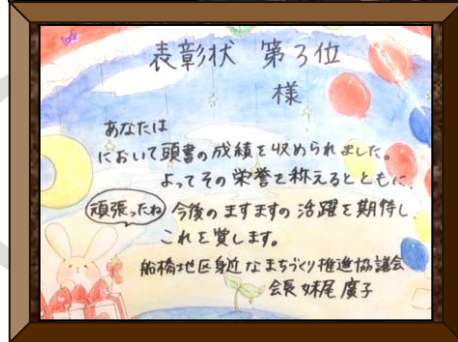 表彰状 第3位
様
あなたは
において頭書の成績を収められました。
よってその栄誉を称えるとともに、
頑張ったね 今後のますますの活躍を期待し
これを賞します。
船橋地区身近なまちづくり推進協議会
会長 妹尾廣子